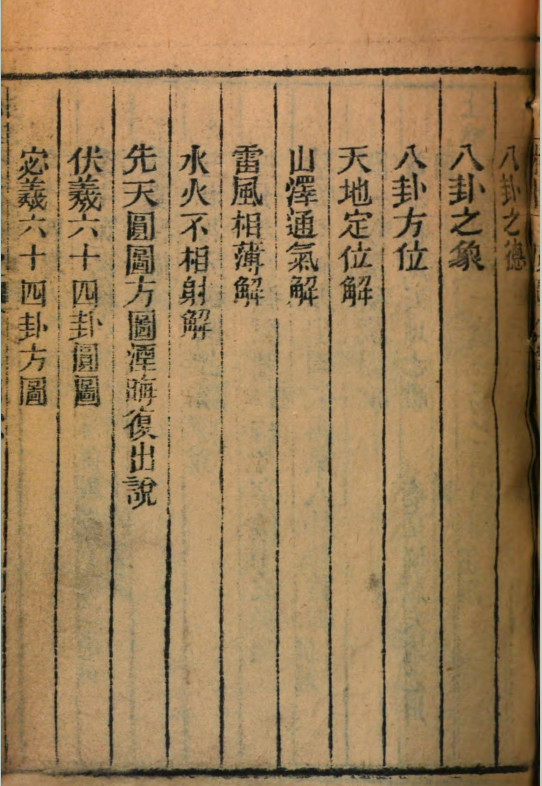 八卦之德
八卦之象
八卦方位
天地定位解
山澤通氣解
雷風相薄解
水火不相射解
先天圓圖方圖湮晦復出說
伏羲六十四卦圓圖
宓羲六十四卦方圖